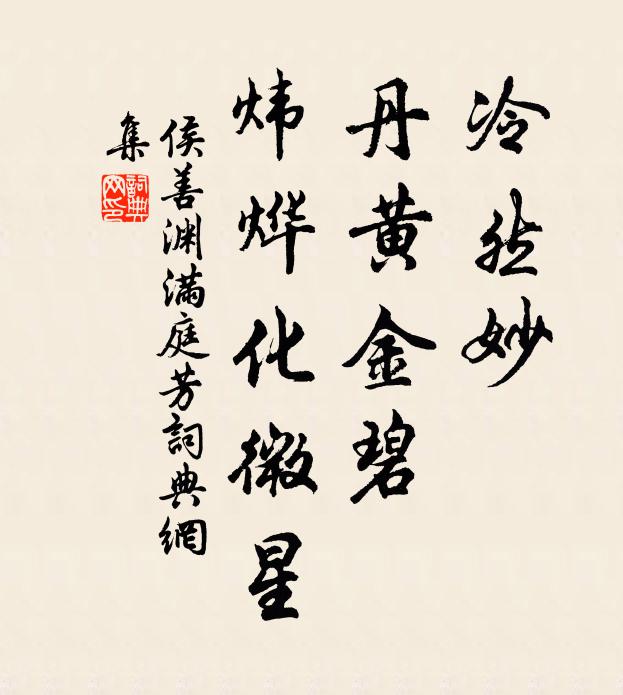 冷然妙
丹黄金碧
炜烨化微星
侯善渊满庭芳词典網
集
詞典網印